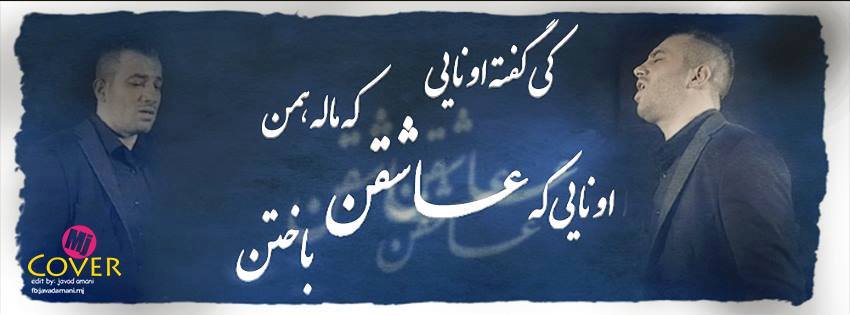 کی گفته اونایی
که ماله همن
اونایی که عاشقن
باختن
Mj
COVER
edit by: javad amani
fb:javadamani.mj